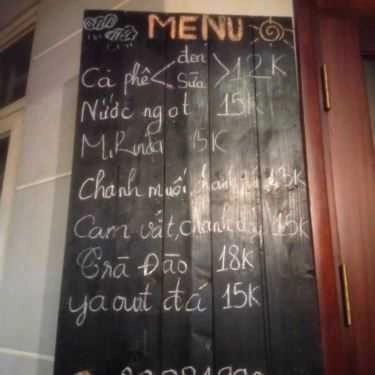 MENU
Cà phê < đen Sữa > 12K
Nước ngọt 15K
M.Rinda 15K
Chanh muối, chanh 13K
Cam vắt, chanh dây 15K
Trà Đào 18K
yaourt đá 15K